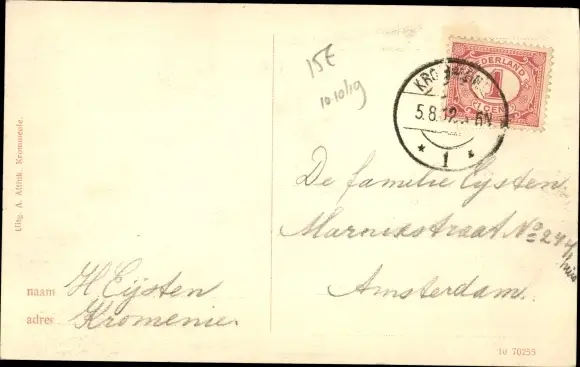 15€
10.10/19
NEDERLAND
1
CENT
5.8.12. 6N
1
De familie Eijsten.
Marnixstraat No 244/
huis
Amsterdam.
Uitg. A. Altink. Krommenie.
naam H. Eijsten
adres Kromenie.
10 70255